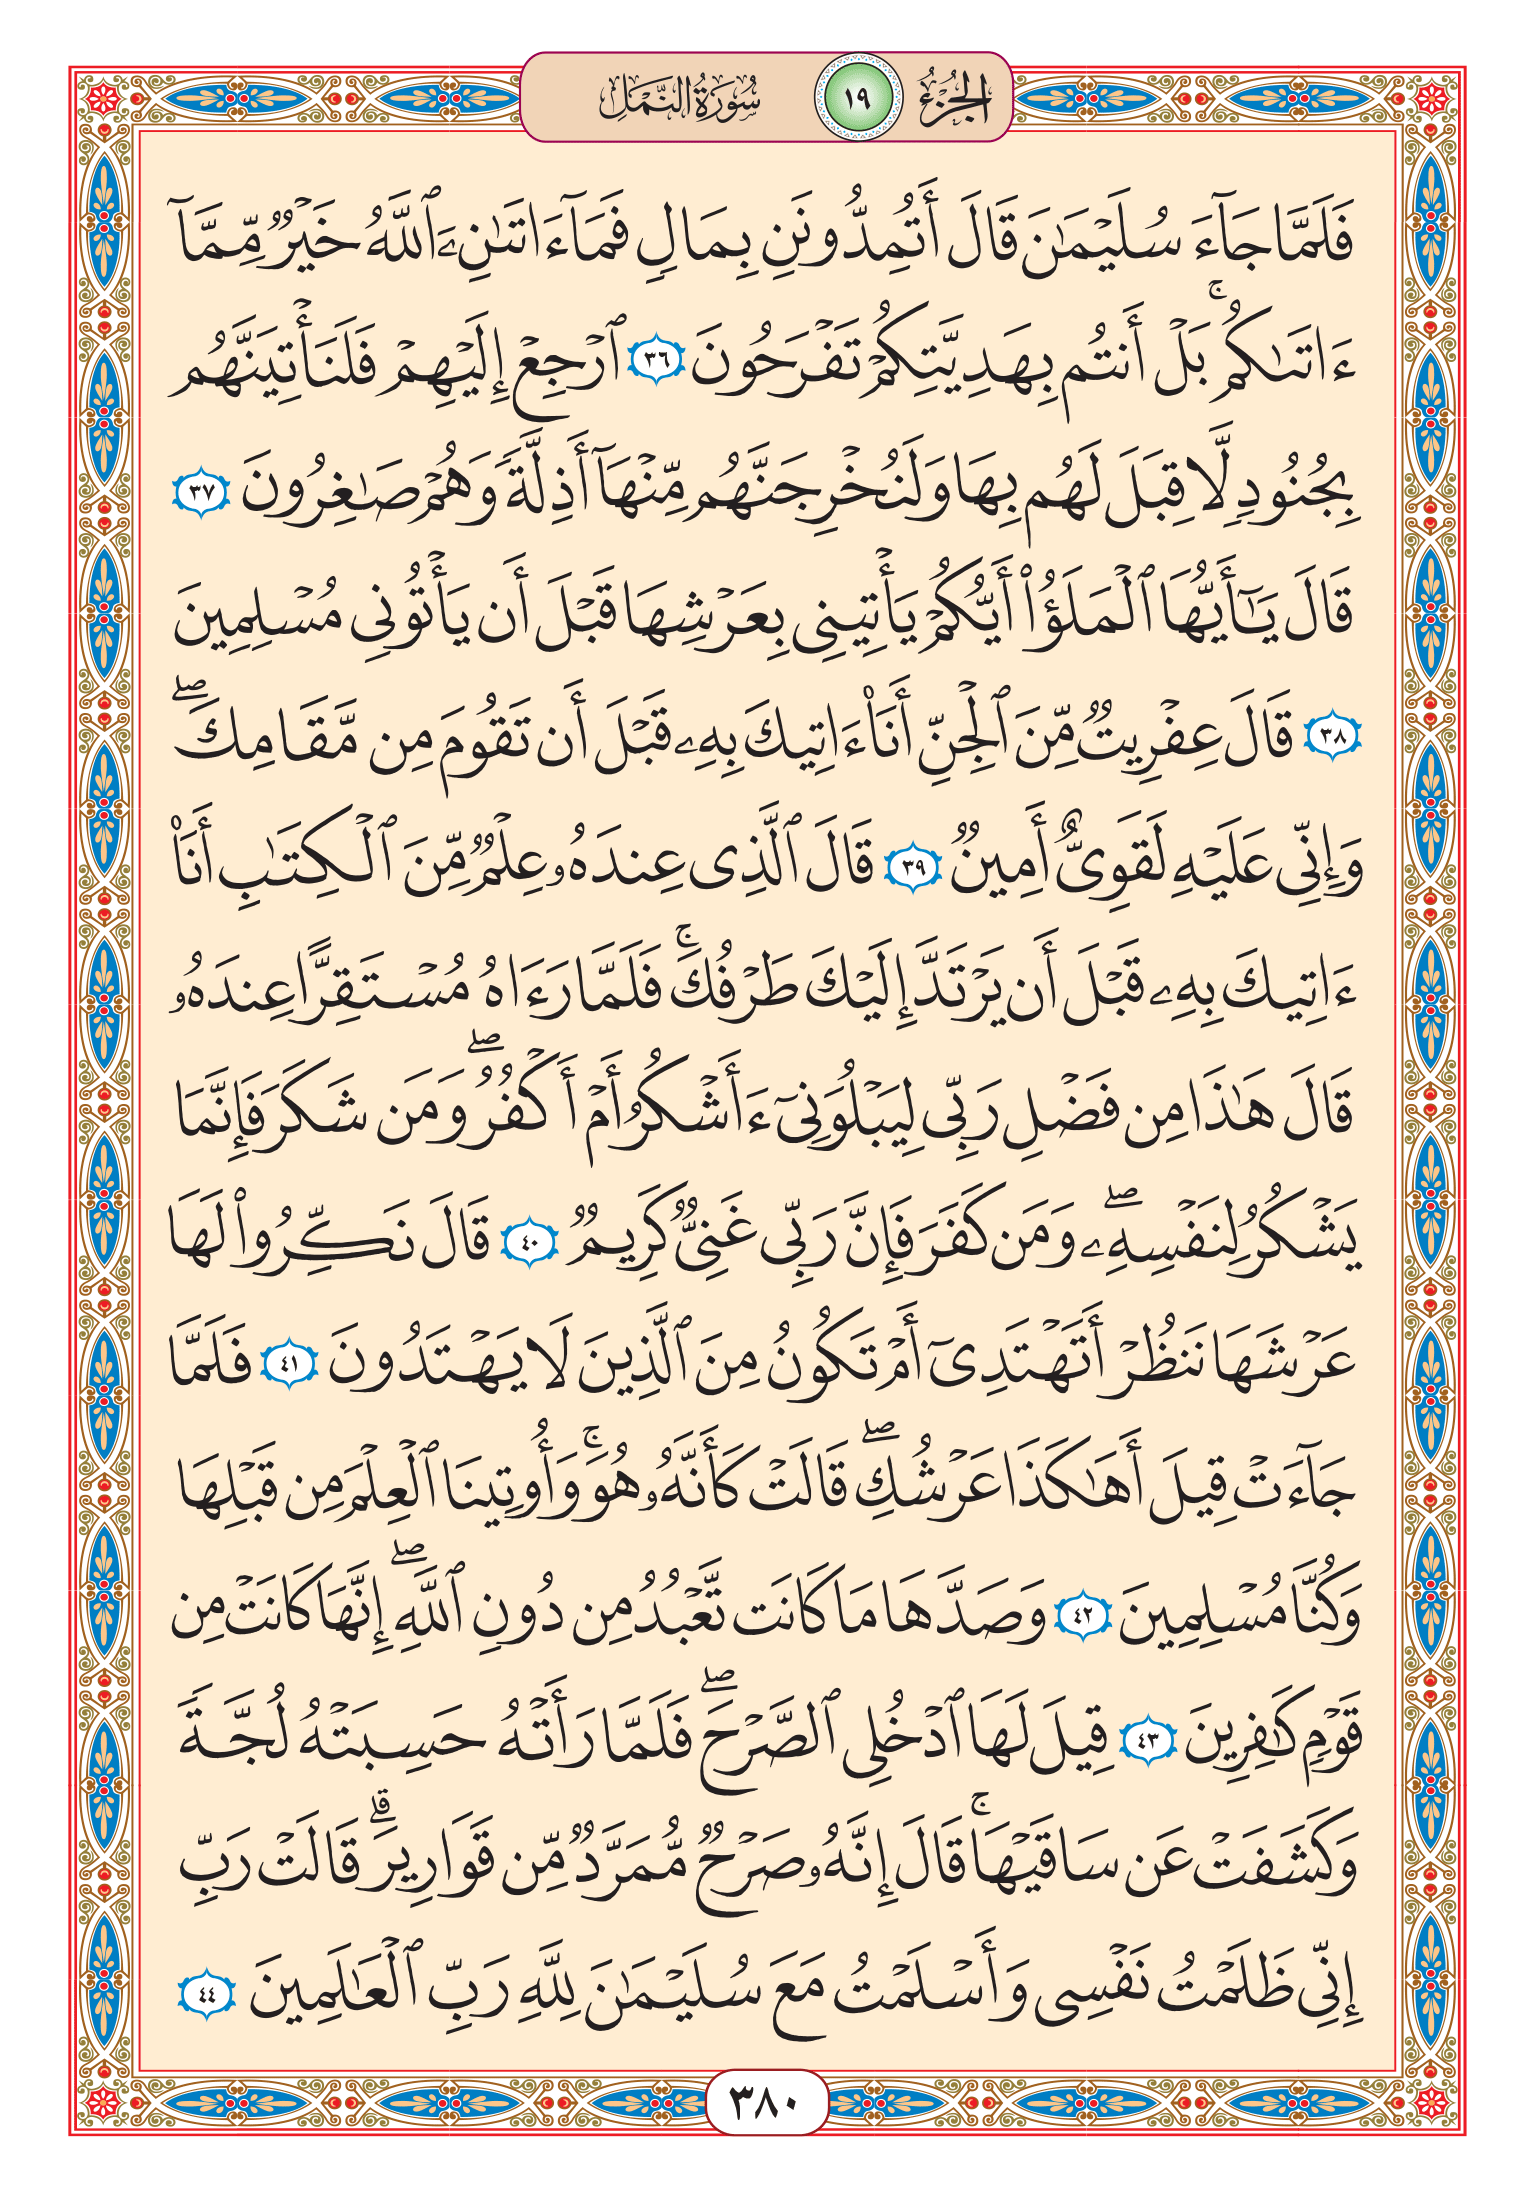 الجزء ١٩ سورة النمل
فَلَمَّا جَآءَ سُلَيْمَٰنَ قَالَ أَتُمِدُّونَنِ بِمَالٍ فَمَآ ءَاتَىٰنِۦَ ٱللَّهُ خَيْرٌ مِّمَّآ
ءَاتَىٰكُم ۚ بَلْ أَنتُم بِهَدِيَّتِكُمْ تَفْرَحُونَ ٣٦ ٱرْجِعْ إِلَيْهِمْ فَلَنَأْتِيَنَّهُم
بِجُنُودٍ لَّا قِبَلَ لَهُم بِهَا وَلَنُخْرِجَنَّهُم مِّنْهَآ أَذِلَّةً وَهُمْ صَٰغِرُونَ ٣٧
قَالَ يَٰٓأَيُّهَا ٱلْمَلَؤُا۟ أَيُّكُمْ يَأْتِينِى بِعَرْشِهَا قَبْلَ أَن يَأْتُونِى مُسْلِمِينَ
٣٨ قَالَ عِفْرِيتٌ مِّنَ ٱلْجِنِّ أَنَا۠ ءَاتِيكَ بِهِۦ قَبْلَ أَن تَقُومَ مِن مَّقَامِكَ ۖ
وَإِنِّى عَلَيْهِ لَقَوِىٌّ أَمِينٌ ٣٩ قَالَ ٱلَّذِى عِندَهُۥ عِلْمٌ مِّنَ ٱلْكِتَٰبِ أَنَا۠
ءَاتِيكَ بِهِۦ قَبْلَ أَن يَرْتَدَّ إِلَيْكَ طَرْفُكَ ۚ فَلَمَّا رَءَاهُ مُسْتَقِرًّا عِندَهُۥ
قَالَ هَٰذَا مِن فَضْلِ رَبِّى لِيَبْلُوَنِىٓ ءَأَشْكُرُ أَمْ أَكْفُرُ ۖ وَمَن شَكَرَ فَإِنَّمَا
يَشْكُرُ لِنَفْسِهِۦ ۖ وَمَن كَفَرَ فَإِنَّ رَبِّى غَنِىٌّ كَرِيمٌ ٤٠ قَالَ نَكِّرُوا۟ لَهَا
عَرْشَهَا نَنظُرْ أَتَهْتَدِىٓ أَمْ تَكُونُ مِنَ ٱلَّذِينَ لَا يَهْتَدُونَ ٤١ فَلَمَّا
جَآءَتْ قِيلَ أَهَٰكَذَا عَرْشُكِ ۖ قَالَتْ كَأَنَّهُۥ هُوَ ۚ وَأُوتِينَا ٱلْعِلْمَ مِن قَبْلِهَا
وَكُنَّا مُسْلِمِينَ ٤٢ وَصَدَّهَا مَا كَانَت تَّعْبُدُ مِن دُونِ ٱللَّهِ ۖ إِنَّهَا كَانَتْ مِن
قَوْمٍ كَٰفِرِينَ ٤٣ قِيلَ لَهَا ٱدْخُلِى ٱلصَّرْحَ ۖ فَلَمَّا رَأَتْهُ حَسِبَتْهُ لُجَّةً
وَكَشَفَتْ عَن سَاقَيْهَا ۚ قَالَ إِنَّهُۥ صَرْحٌ مُّمَرَّدٌ مِّن قَوَارِيرَ ۗ قَالَتْ رَبِّ
إِنِّى ظَلَمْتُ نَفْسِى وَأَسْلَمْتُ مَعَ سُلَيْمَٰنَ لِلَّهِ رَبِّ ٱلْعَٰلَمِينَ ٤٤
٣٨٠